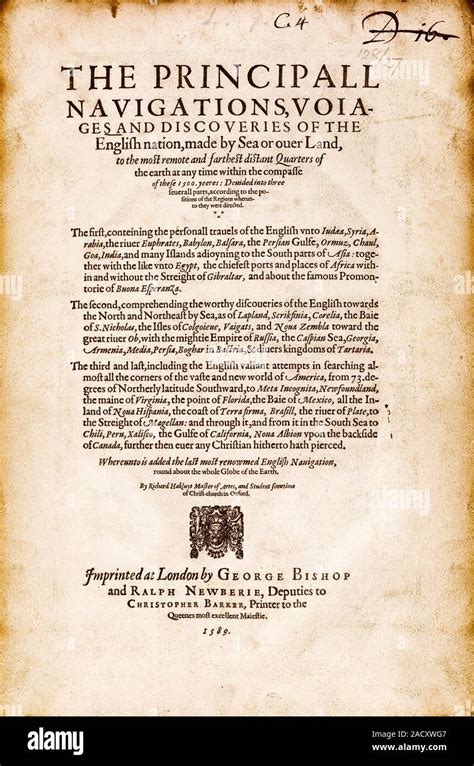 C.4
D-16.
THE PRINCIPALL
NAVIGATIONS, VOIA-
GES AND DISCOVERIES OF THE
Engliſh nation, made by Sea or ouer Land,
to the moſt remote and fartheſt diſtant Quarters of
the earth at any time within the compaſſe
of theſe 1500. yeeres: Deuided into three
ſeuerall parts, according to the po-
ſitions of the Regions wherun-
to they were directed.
The firſt, conteining the perſonall trauels of the Engliſh vnto Iudæa, Syria, A-
rabia, the riuer Euphrates, Babylon, Balſara, the Perſian Gulfe, Ormuz, Chaul,
Goa, India, and many Iſlands adioyning to the South parts of Aſia: toge-
ther with the like vnto Egypt, the chiefeſt ports and places of Africa with-
in and without the Streight of Gibraltar, and about the famous Promon-
torie of Buona Eſperanza.
The ſecond, comprehending the worthy diſcoueries of the Engliſh towards
the North and Northeaſt by Sea, as of Lapland, Scrikſinia, Corelia, the Baie
of S. Nicholas, the Iſles of Colgoieue, Vaigats, and Noua Zembla toward the
great riuer Ob, with the mightie Empire of Ruſſia, the Caſpian Sea, Georgia,
Armenia, Media, Perſia, Boghar in Bactria, & diuers kingdoms of Tartaria.
The third and laſt, including the Engliſh valiant attempts in ſearching al-
moſt all the corners of the vaſte and new world of America, from 73. de-
grees of Northerly latitude Southward, to Meta Incognita, Newfoundland,
the maine of Virginia, the point of Florida, the Baie of Mexico, all the In-
land of Noua Hiſpania, the coaſt of Terra firma, Braſill, the riuer of Plate, to
the Streight of Magellan: and through it, and from it in the South Sea to
Chili, Peru, Xaliſco, the Gulfe of California, Noua Albion vpon the backſide
of Canada, further then euer any Chriſtian hitherto hath pierced.
Whereunto is added the laſt moſt renowmed Engliſh Nauigation,
round about the whole Globe of the Earth.
By Richard Hakluyt Maſter of Artes, and Student ſometime
of Chriſt-church in Oxford.
Imprinted at London by GEORGE BISHOP
and RALPH NEWBERIE, Deputies to
CHRISTOPHER BARKER, Printer to the
Queenes moſt excellent Maieſtie.
1589.
a alamy stock photo
2ACXWG7